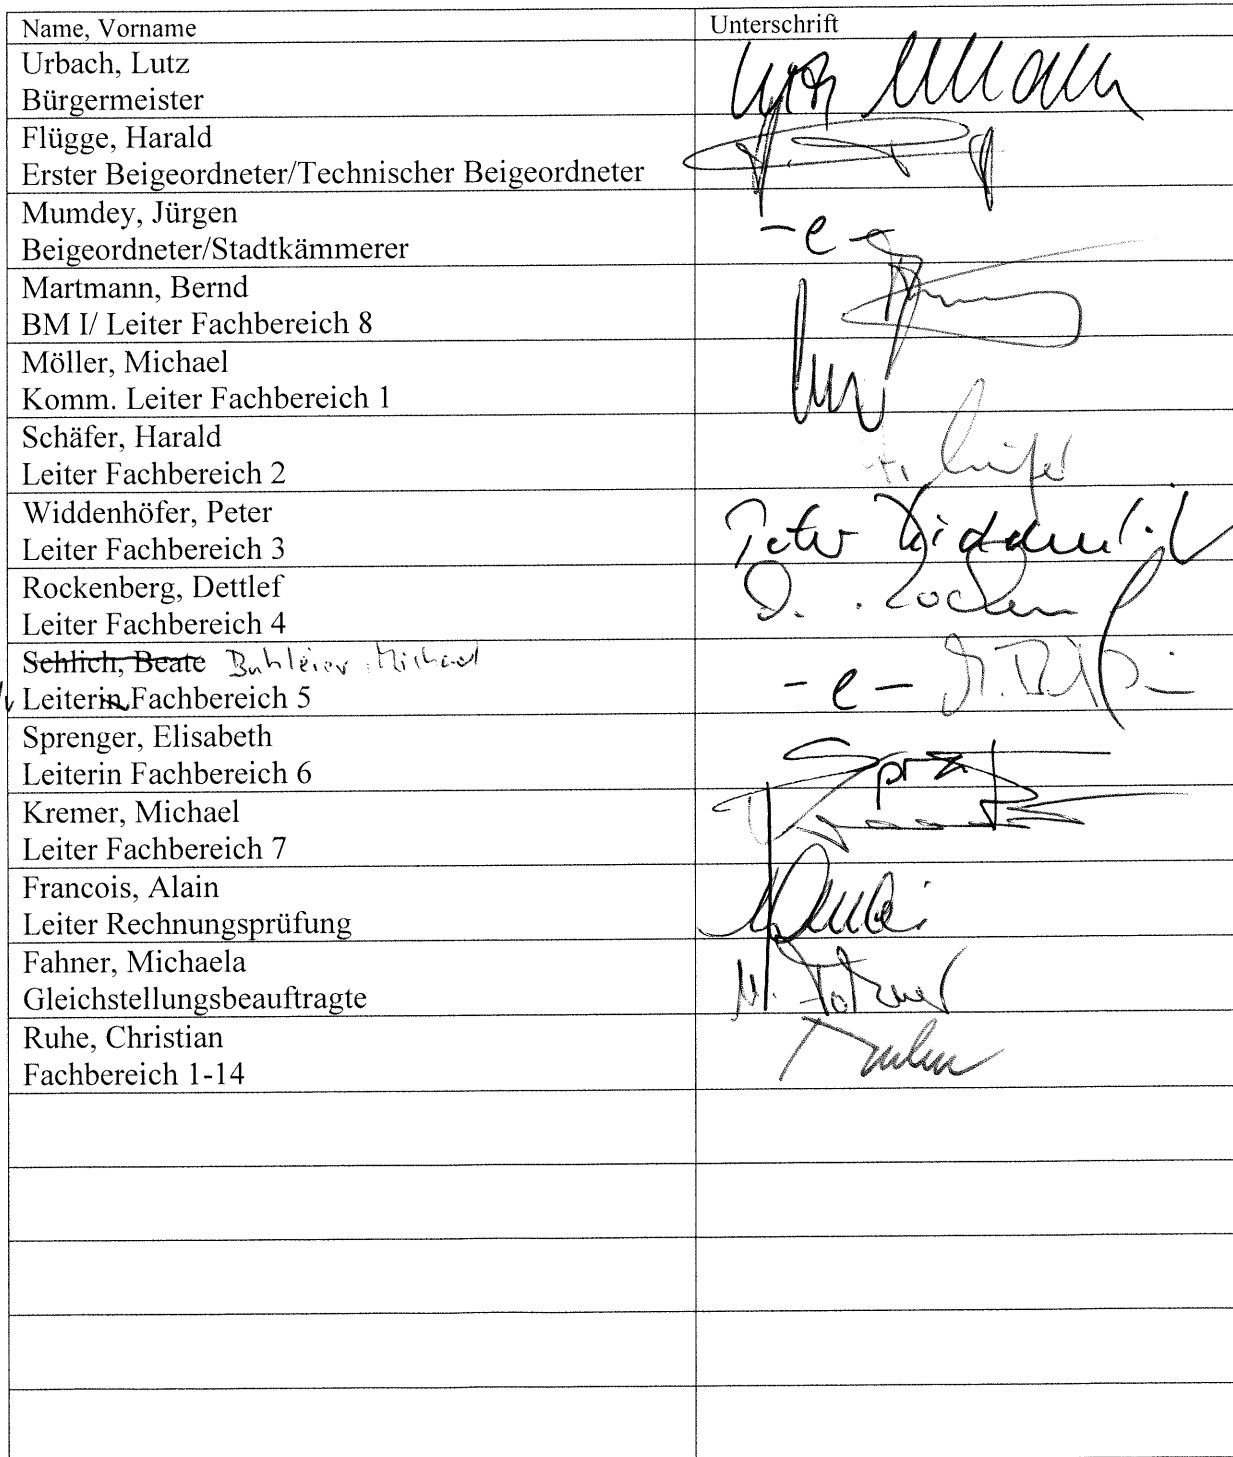 Name, Vorname Unterschrift
Urbach, Lutz
Bürgermeister
Flügge, Harald
Erster Beigeordneter/Technischer Beigeordneter
Mumdey, Jürgen
Beigeordneter/Stadtkämmerer
- e -
Martmann, Bernd
BM I/ Leiter Fachbereich 8
Möller, Michael
Komm. Leiter Fachbereich 1
Schäfer, Harald
Leiter Fachbereich 2
Widdenhöfer, Peter
Leiter Fachbereich 3
Peter
Rockenberg, Dettlef
Leiter Fachbereich 4
Schlich, Beate Buhleier, Michael
Leiterin Fachbereich 5
- e -
Sprenger, Elisabeth
Leiterin Fachbereich 6
Kremer, Michael
Leiter Fachbereich 7
Francois, Alain
Leiter Rechnungsprüfung
Fahner, Michaela
Gleichstellungsbeauftragte
M. Fahner
Ruhe, Christian
Fachbereich 1-14